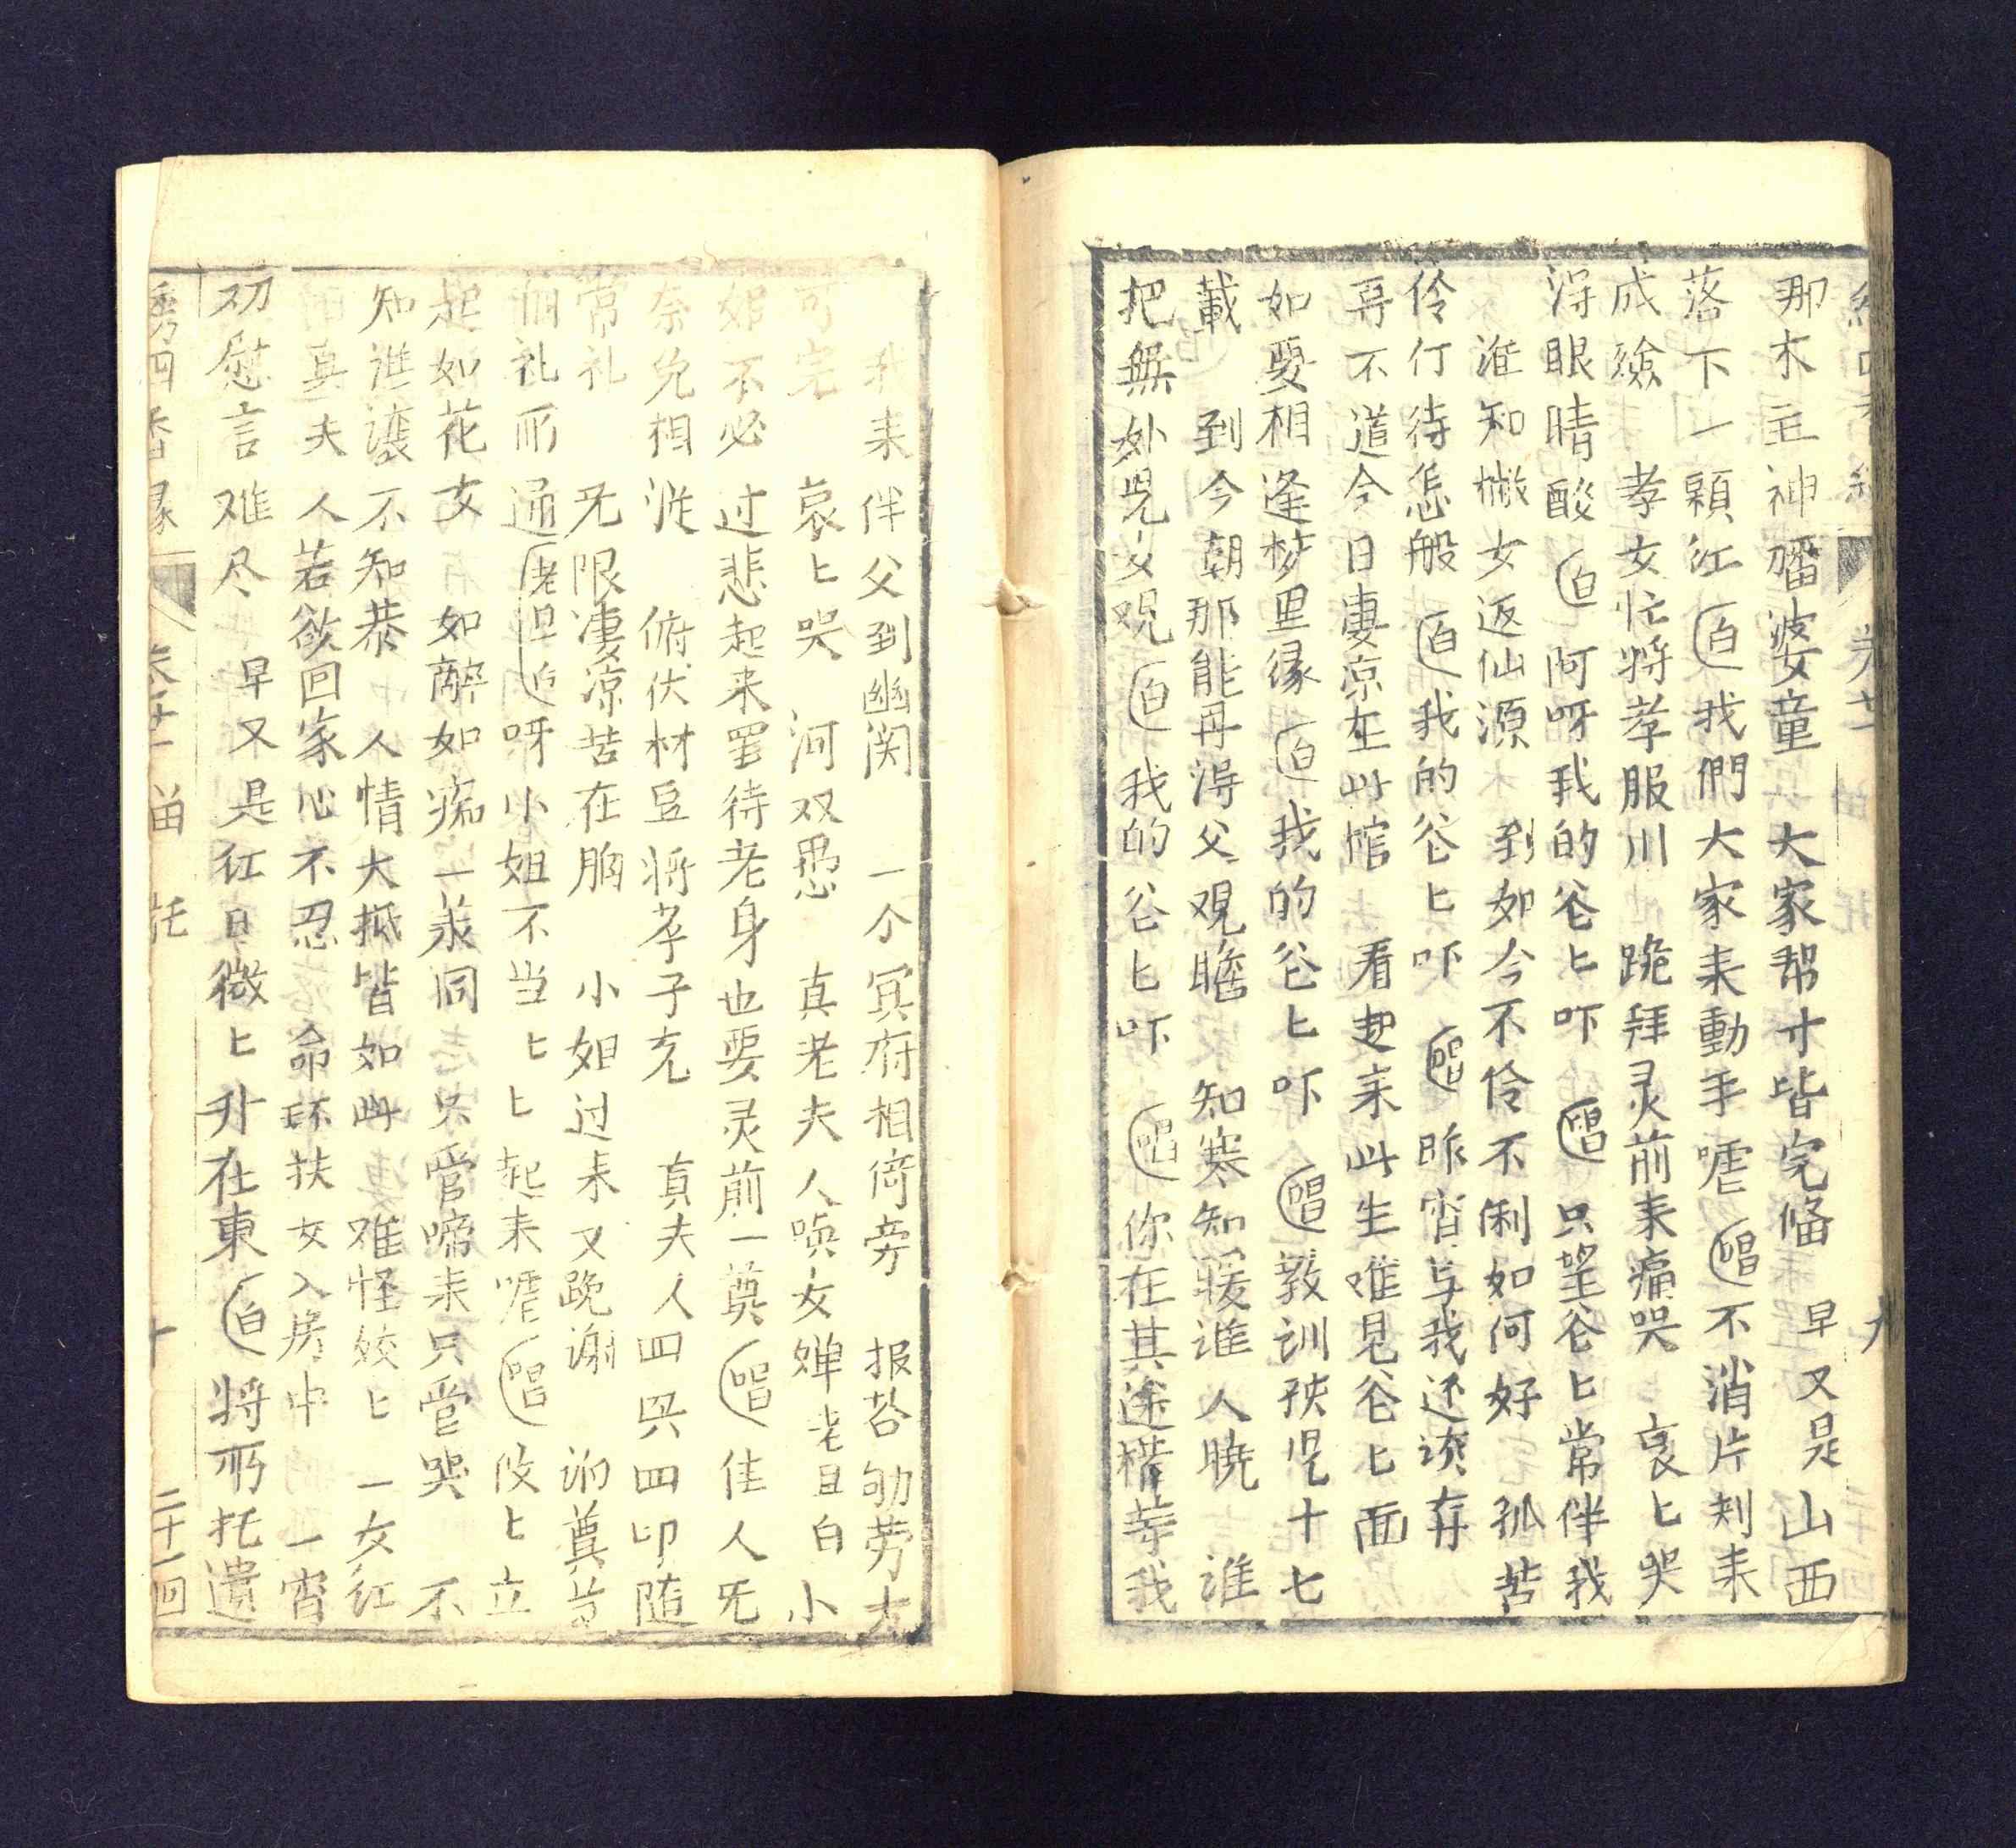 那木主神旛婆女童 大家帮寸皆完俻 早又是山西
落下一顆江(白)我們大家来動手嚜(唱)不消片刻来
成殮 孝女忙将孝服川 跪拜灵前来痛哭 哀匕哭
淂眼睛酸(白)阿呀我的爸匕吓(唱)只望爸匕常伴我
誰知撇女返仙源 到如今不伶不俐如何好 孤苦
伶仃待怎般(白)我的爸匕吓(唱)昨宵与我还湏存
再不道今日凄凉在此棺 看起来此生难見爸匕面
如要相逢梦里缘(白)我的爸匕吓(唱)教訓孩児十七
載 到今朝那能再淂父覌瞻 知寒知暖誰人暁 誰
把無妙児父观(白)我的爸匕吓(唱)你在其途楷等我
我来伴父到幽関 一个冥府相倚旁 报荅劬劳大
可完 哀匕哭 河双愚 真老夫人喚女婵老旦白小
姐不必过悲起来罢待老身也要灵前一奠(唱)佳人旡
奈免相泩 俯伏材豆将孝子充 真夫人四㒷四叩随
常礼 旡限凄凉苦在胸 小姐过来又跪謝 洒奠並
個礼而通(老旦白)呀小姐不当匕匕起来嚜(唱)伩匕立
起如花女 如醉如痴一㒼同 只管啼来只管哭 不
知誰讓不知恭 人情大抵皆如此 难怪姣匕一女紅
真夫人若欲回家心不忍 命环扶女入房中 一宵
劝慰言难尽 早又是红日微匕升在東(白)将所托遗
綉四香缘 卷廿一 苗 託 十 二十一回